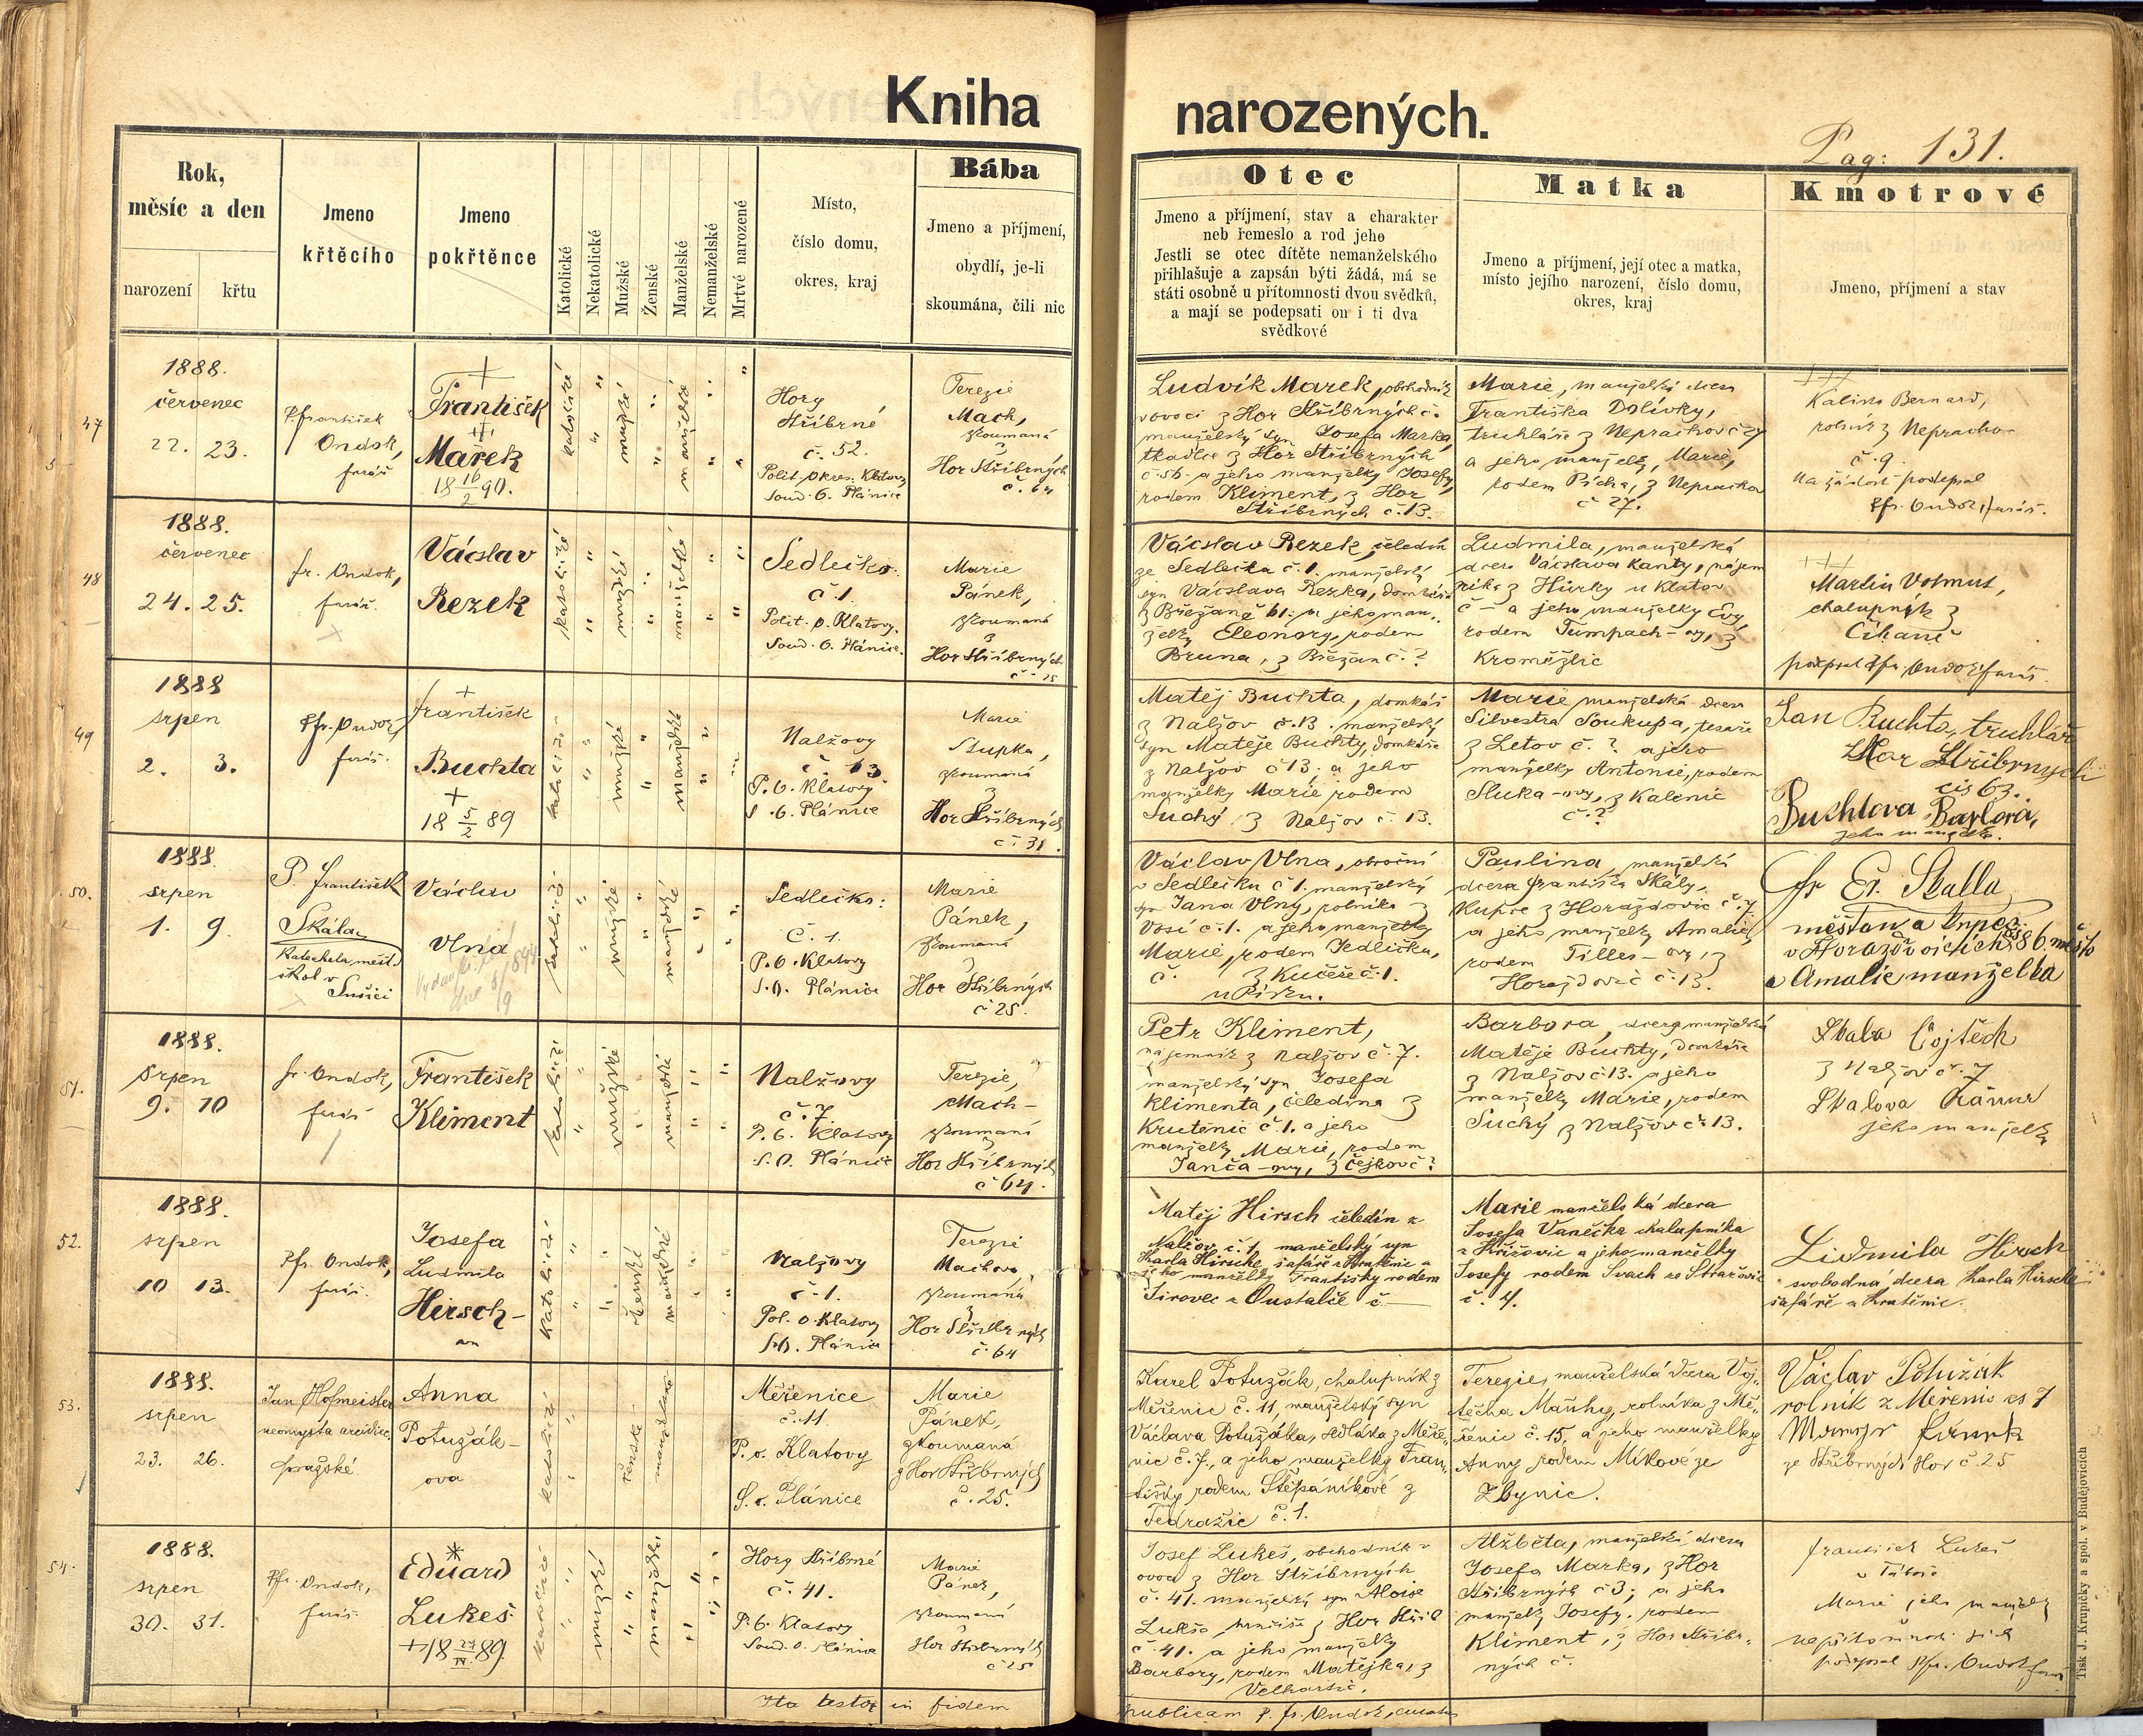 Kniha narozených.
Pag: 131.
Rok,
měsíc a den
narození
křtu
Jmeno
křtěcího
Jmeno
pokřtěnce
Katolické
Nekatolické
Mužské
Ženské
Manželské
Nemanželské
Mrtvé narozené
Místo,
číslo domu,
okres, kraj
Bába
Jmeno a příjmení,
obydlí, je-li
skoumána, čili nic
Otec
Jmeno a příjmení, stav a charakter
neb řemeslo a rod jeho
Jestli se otec dítěte nemanželského
přihlašuje a zapsán býti žádá, má se
státi osobně u přítomnosti dvou svědků,
a mají se podepsati on i ti dva
svědkové
Matka
Jmeno a příjmení, její otec a matka,
místo jejího narození, číslo domu,
okres, kraj
Kmotrové
Jmeno, příjmení a stav
47
1888.
červenec
22. 23.
P. František
Ondok,
farář
František
Marek
18 16/2 90.
katolické
mužské
manželské
Hory
Stříbrné
č. 52.
Polit. okres. Klatovy
Soud. O. Plánice
Terezie
Mach,
zkoumaná
z
Hor Stříbrných
č. 64
Ludvík Marek, obchodník
s ovocí z Hor Stříbrných č.
manželský syn Josefa Marka,
tkadlce z Hor Stříbrných
č. 56. a jeho manželky Josefy,
rodem Kliment, z Hor
Stříbrných č. 13.
Marie, manželská dcera
Františka Dolívky,
truhláře z Neprachov č 27
a jeho manželky, Marie,
rodem Pícha, z Neprachov
č 27.
Kalina Bernard,
rolník z Nepracho-
č. 9.
Na žádost podepsal
P fr. Ondok, farář.
48
1888.
červenec
24. 25.
fr. Ondok,
farář.
Václav
Rezek
katolické
mužské
manželské
Sedlečko.
č. 1.
Polit. o. Klatovy.
Soud. O. Plánice.
Marie
Pánek,
zkoumaná
z
Hor Stříbrných
č. 25
Václav Rezek, čeledín
ze Sedlečka č. 1. manželský
syn Václava Rezka, domkáře
z Břežan č 61. a jeho man-
želky Eleonory, rodem
Bruna, z Břežan č. ?
Ludmila, manželská
dcera Václava Kanty, nájem
níka z Hůrky u Klatov
č — a jeho manželky Evy,
rodem Tumpach-ovy, z
Kroměždic
Martin Votmut,
chalupník z
Číhaně
podepsal P fr. Ondok farář.
49
1888
srpen
2. 3.
P fr. Ondok,
farář.
František
Buchta
18 5/2 89
katolické
mužské
manželské
Nalžovy
č. 13.
P. O. Klatovy
S. O. Plánice
Marie
Stupka,
zkoumaná
z
Hor Stříbrných
č. 31.
Matěj Buchta, domkář
z Nalžov č. 13. manželský
syn Matěje Buchty, domkáře
z Nalžov č 13. a jeho
manželky Marie rodem
Suchý, z Nalžov č. 13.
Marie manželská dcera
Silvestra Soukupa, tesaře
z Letov č. ? a jeho
manželky Antonie, rodem
Sluka-ovy, z Kalenic
č. ?
Jan Buchta, truhlář
z Hor Stříbrných
čís 63.
Buchtova Barbora,
jeho manželka.
50.
1888.
srpen
1. 9.
P. František
Skála
Katecheta měst.
škol v
Sušici
Václav
Vlna
katolické
mužské
manželské
Sedlečko:
č. 1.
P. O. Klatovy
S. O. Plánice
Marie
Pánek,
zkoumaná
z
Hor Stříbrných
č 25.
Václav Vlna, obroční
v Sedlečku č 1. manželský
syn Jana Vlny, rolníka z
Vosí č. 1. a jeho manželky
Marie, rodem Jedlička,
č. z Kučeře č. 1.
u Písku.
Paulina, manželská
dcera Františka Skály,
Kupce z Horažďovic č. 7
a jeho manželky Amalie,
rodem Tilles-ovy, z
Horažďovic č. 13.
Fr Er. Skalla
měšťan a kupec
v Horažďovicích čís 86. město
a Amalie manželka
51.
1888.
Srpen
9. 10
fr. Ondok,
farář
František
Kliment
katolické
mužské
manželské
Nalžovy
č. 7.
P. O. Klatovy
S. O. Plánice
Terezie,
Mach-
zkoumaná
z
Hor Stříbrných
č 64.
Petr Kliment,
nájemník z Nalžov č. 7.
manželský syn Josefa
Klimenta, čeledína z
Krutěnic č. 1. a jeho
manželky Marie, rodem
Janča-ovy, z Čejkov č ?
Barbora, dcera manželská
Matěje Buchty, domkáře
z Nalžov č 13. a jeho
manželky Marie, rodem
Suchý z Nalžov č. 13.
Skala Vojtěch
z Nalžov č. 7
Skalova
jeho manželka
52.
1888.
srpen
10 13.
P fr. Ondok,
farář.
Josefa
Ludmila
Hirsch-
ova
katolické
ženské
manželské
Nalžovy
č. 1.
Pol. o. Klatovy
S. O. Plánice
Terezie
Machova
zkoumaná
z
Hor Stříbrných
č. 64
Matěj Hirsch čeledín z
Nalžov č. 1 manželský syn
Karla Hirsche, šafáře z Krutěnic a
jeho manželky Františky rodem
Sirovec z Oustalče č. —
Marie manželská dcera
Josefa Vaněčka chalupníka
z Křížovic a jeho manželky
Josefy rodem Svach ze Strážovic
č. 4.
Lidmila Hirsch
svobodná dcera Karla Hirsche
šafáře z Krutěnic.
53.
1888.
srpen
23. 26.
Jan Hofmeister
neomysta arcidiec.
pražské
Anna
Potužák-
ova
katolické
ženské
manželské
Měřenice
č. 11.
P. o. Klatovy
S. o. Plánice
Marie
Pánek
zkoumaná
z Hor Stříbrných
č. 25.
Karel Potužák, chalupník z
Měřenic č. 11 manželský syn
Václava Potužáka, sedláka z Měře-
nic č. 7., a jeho manželky Fran-
tišky rodem Štěpáníkové z
Tedražic č. 1.
Terezie, manželská dcera Voj-
těcha Maňhy, rolníka z Mě-
řenic č. 15, a jeho manželky
Anny rodem Míkové ze
Zbynic.
Václav Potužák
rolník z Měřenic čs 7
ze Stříbrných Hor č. 25
54.
1888.
srpen
30. 31.
P fr. Ondok,
farář
Eduard
Lukeš
18 27/IV. 89.
katolické
mužské
manželské
Hory Stříbrné
č. 41.
P. O. Klatovy
Soud. O. Plánice
Marie
Pánek,
zkoumaná
z
Hor Stříbrných
č 25
Josef Lukeš, obchodník v
ovoci z Hor Stříbrných
č. 41. manželský syn Aloise
Lukše, z Hor Stříb
č. 41. a jeho manželky
Barbory, rodem Matějka, z
Velhartic.
Alžběta, manželská dcera
Josefa Marka, z Hor
Stříbrných č 3; a jeho
manželky Josefy, rodem
Kliment, z Hor Stříbr-
ných č.
František Lukeš
Marie jeho manželka
podepsal P fr. Ondok farář
Ita testor in fidem
publicam P. fr. Ondok, curatus
Tisk J. Krupičky a spol. v Budějovicích